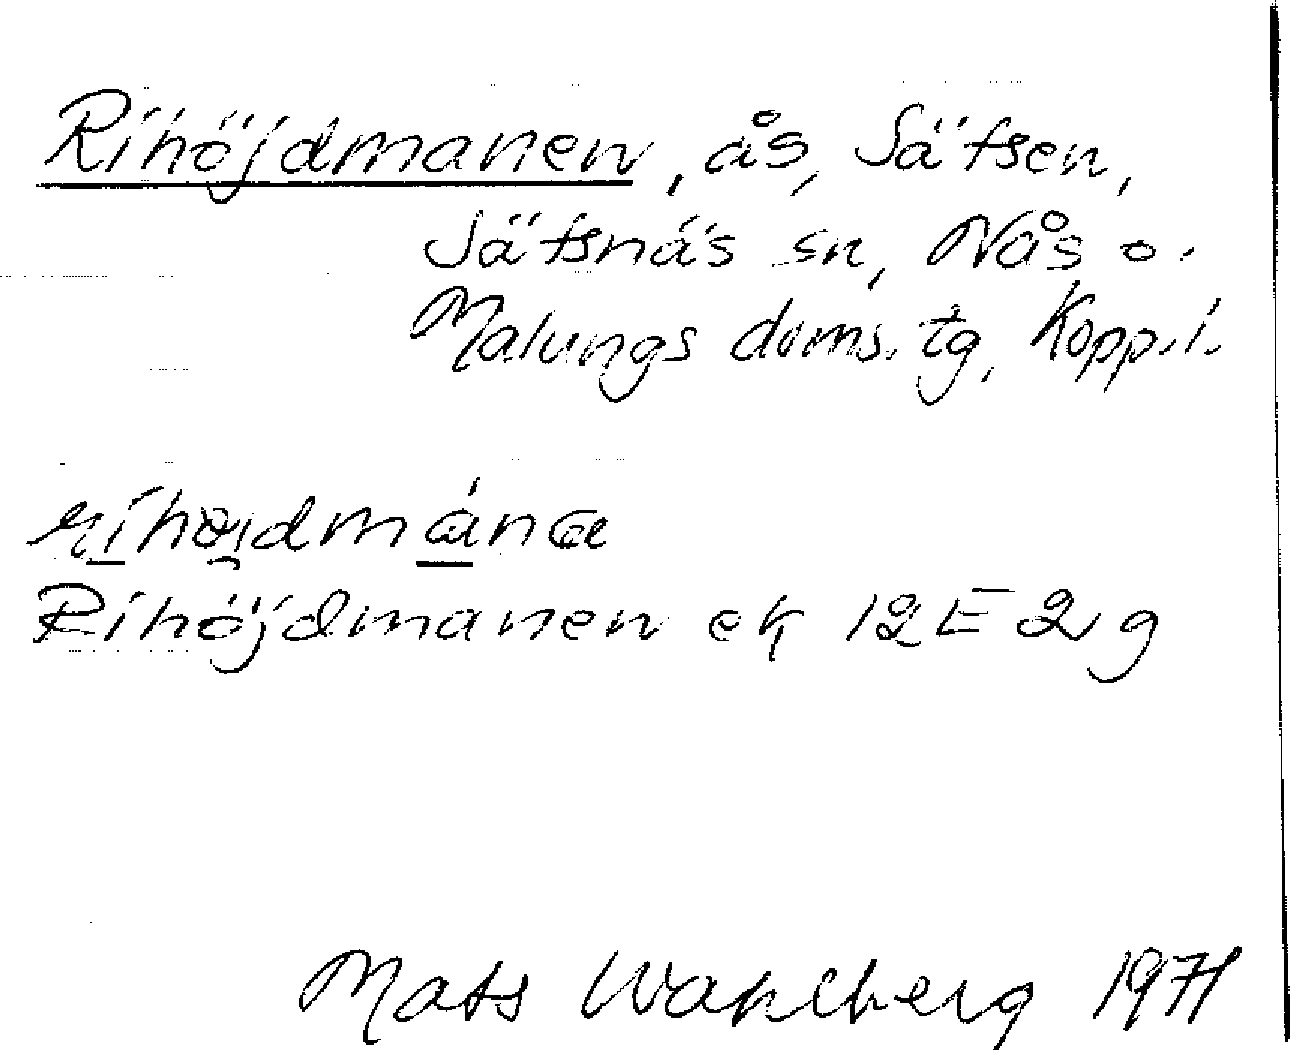 Rihöjdmanen, ås, Sätsen,
Järnäs sn, Nås o.
Malungs doms. tg, Kopp. l.
Rihöjdmanen ek 12E 2g
Mats Wahlberg 1971